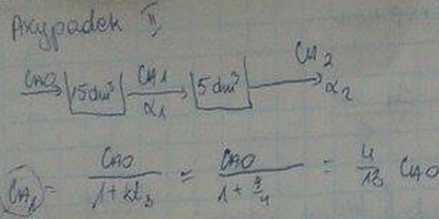 Przypadek II
CA0 → 15dm³ CA1 α1 → 5dm³ → CA2 α2
CA1 = CA0 / (1 + kt3) = CA0 / (1 + 9/4) = 4/13 CA0